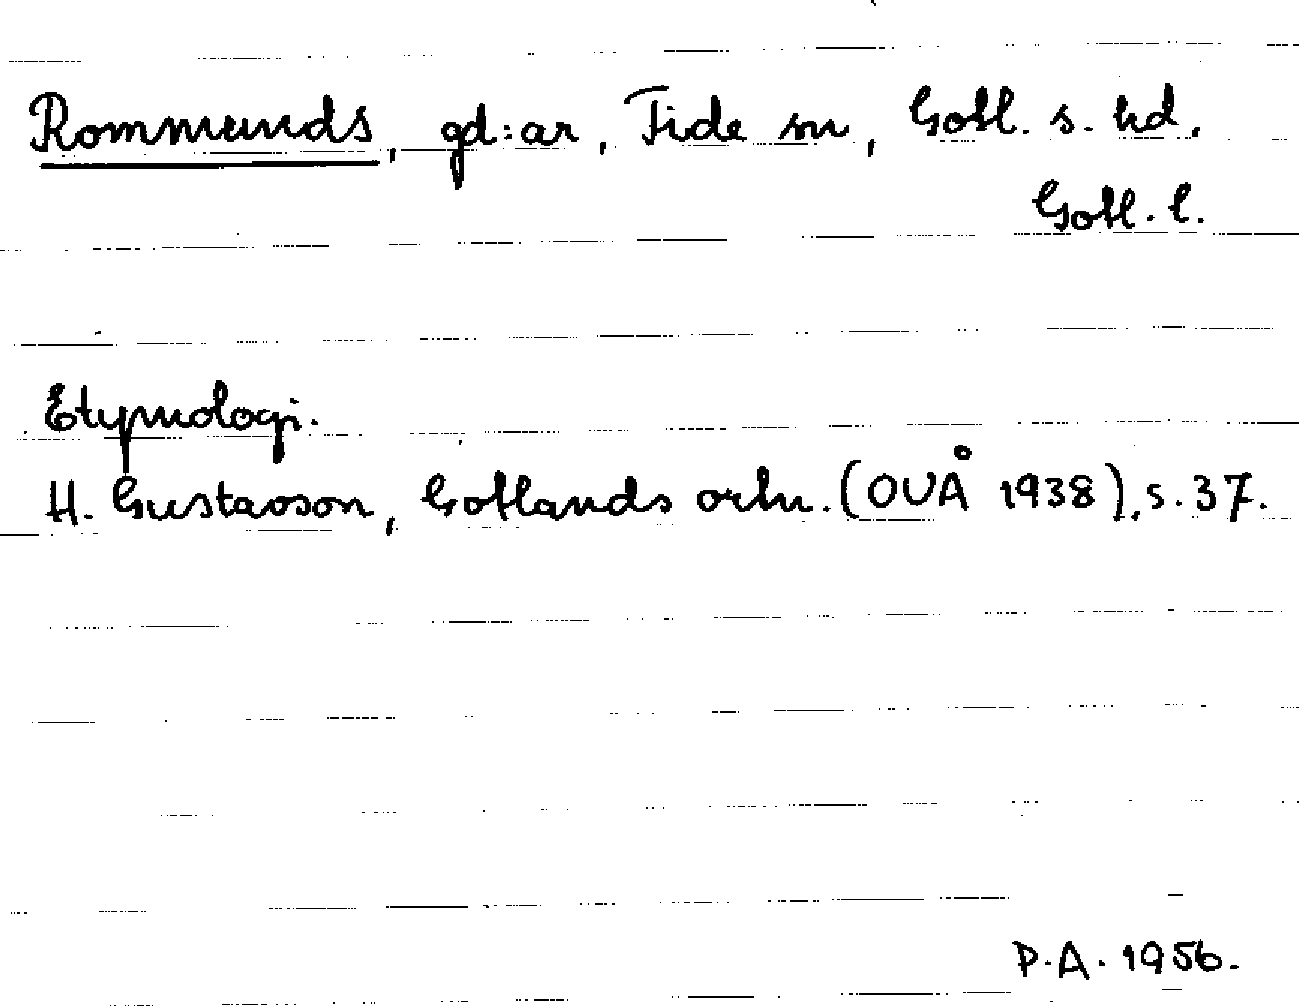 Rommunds, gd:ar, Fide sn, Gotl. s. hd.
Gotl. l.
Etymologi.
H. Gustavson, Gotlands ortn. (OUÅ 1938), s. 37.
P.A. 1956.